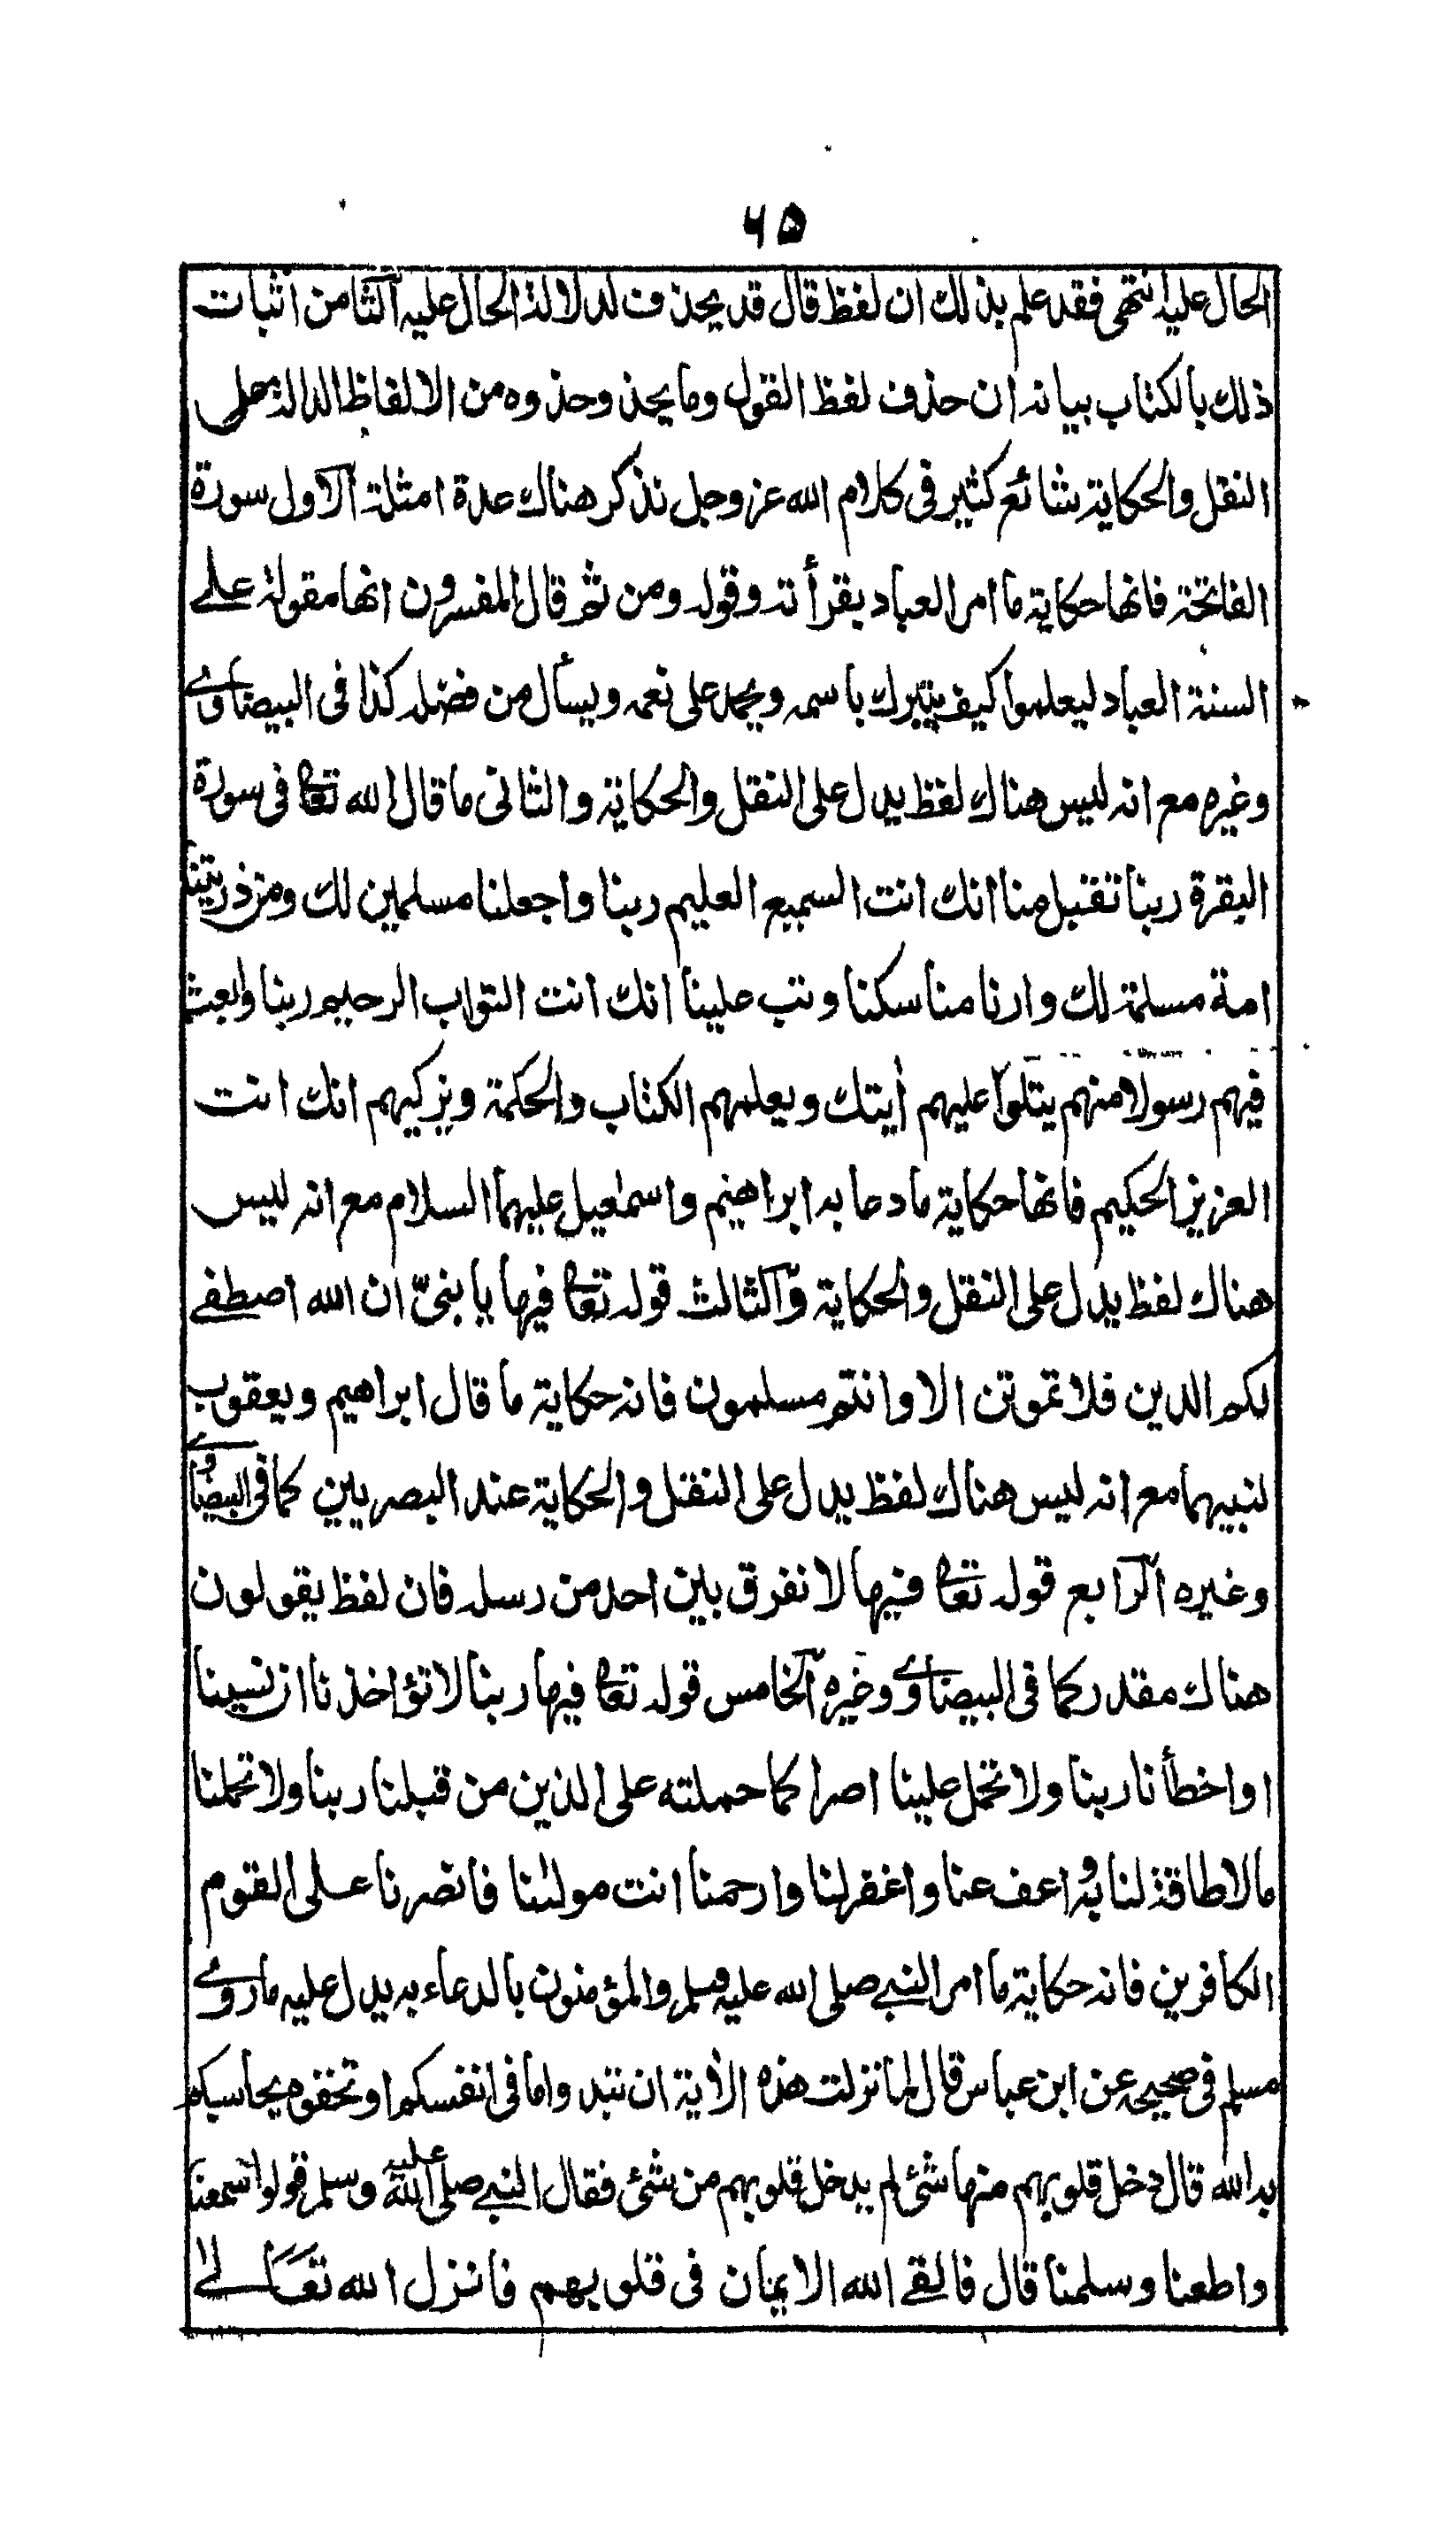 ٦٥
الحال عليه انتهى فقد علم بذلك ان لفظ قال قد يحذف لدلالة الحال عليه الثامن اثبات
ذلك بالكتاب بيانه ان حذف لفظ القول وما يحذو حذوه من الالفاظ الدالة على
النقل والحكاية شائع كثير فى كلام الله عز وجل نذكر هناك عدة امثلة الاول سورة
الفاتحة فانها حكاية ما امر العباد بقرأته وقوله ومن ثم قال المفسرون انها مقولة علے
السنة العباد ليعلموا كيف يتبرك باسمه ويحمد على نعمه ويسأل من فضله كذا فى البيضاوے
وغيره مع انه ليس هناك لفظ يدل على النقل والحكاية والثانى ما قال الله تعا فى سورة
البقرة ربنا تقبل منا انك انت السميع العليم ربنا واجعلنا مسلمين لك ومن ذريتنا
امة مسلمة لك وارنا مناسكنا وتب علينا انك انت التواب الرحيم ربنا وابعث
فيهم رسولا منهم يتلوا عليهم أيتك ويعلمهم الكتاب والحكمة ويزكيهم انك انت
العزيز الحكيم فانها حكاية ما دعا به ابراهيم واسمعيل عليهما السلام مع انه ليس
هناك لفظ يدل على النقل والحكاية والثالث قوله تعا فيها يا بنىّ ان الله اصطفے
لكم الدين فلا تموتن الا وانتم مسلمون فانه حكاية ما قال ابراهيم ويعقوب
لنبيهما مع انه ليس هناك لفظ يدل على النقل والحكاية عند البصريين كما فى البيضاوے
وغيره الرابع قوله تعا فيها لا نفرق بين احد من رسله فان لفظ يقولون
هناك مقدر كما فى البيضاوے وغيره الخامس قوله تعا فيها ربنا لا تؤاخذنا ان نسينا
او اخطأنا ربنا ولا تحمل علينا اصرا كما حملته على الذين من قبلنا ربنا ولا تحملنا
ما لا طاقة لنا به واعف عنا واغفر لنا وارحمنا انت مولنا فانصرنا على القوم
الكافرين فانه حكاية ما امر النبے صلى الله عليه وسلم والمؤمنون بالدعاء به يدل عليه ما روے
مسلم فى صحيحه عن ابن عباس قال لما نزلت هذه الأية ان تبدوا ما فى انفسكم او تخفوه يحاسبكم
به الله قال دخل قلوبهم منها شئ لم يدخل قلوبهم من شئ فقال النبے صلى الله عليه وسلم قولوا سمعنا
واطعنا وسلمنا قال فالقے الله الايمان فى قلوبهم فانزل الله تعالے